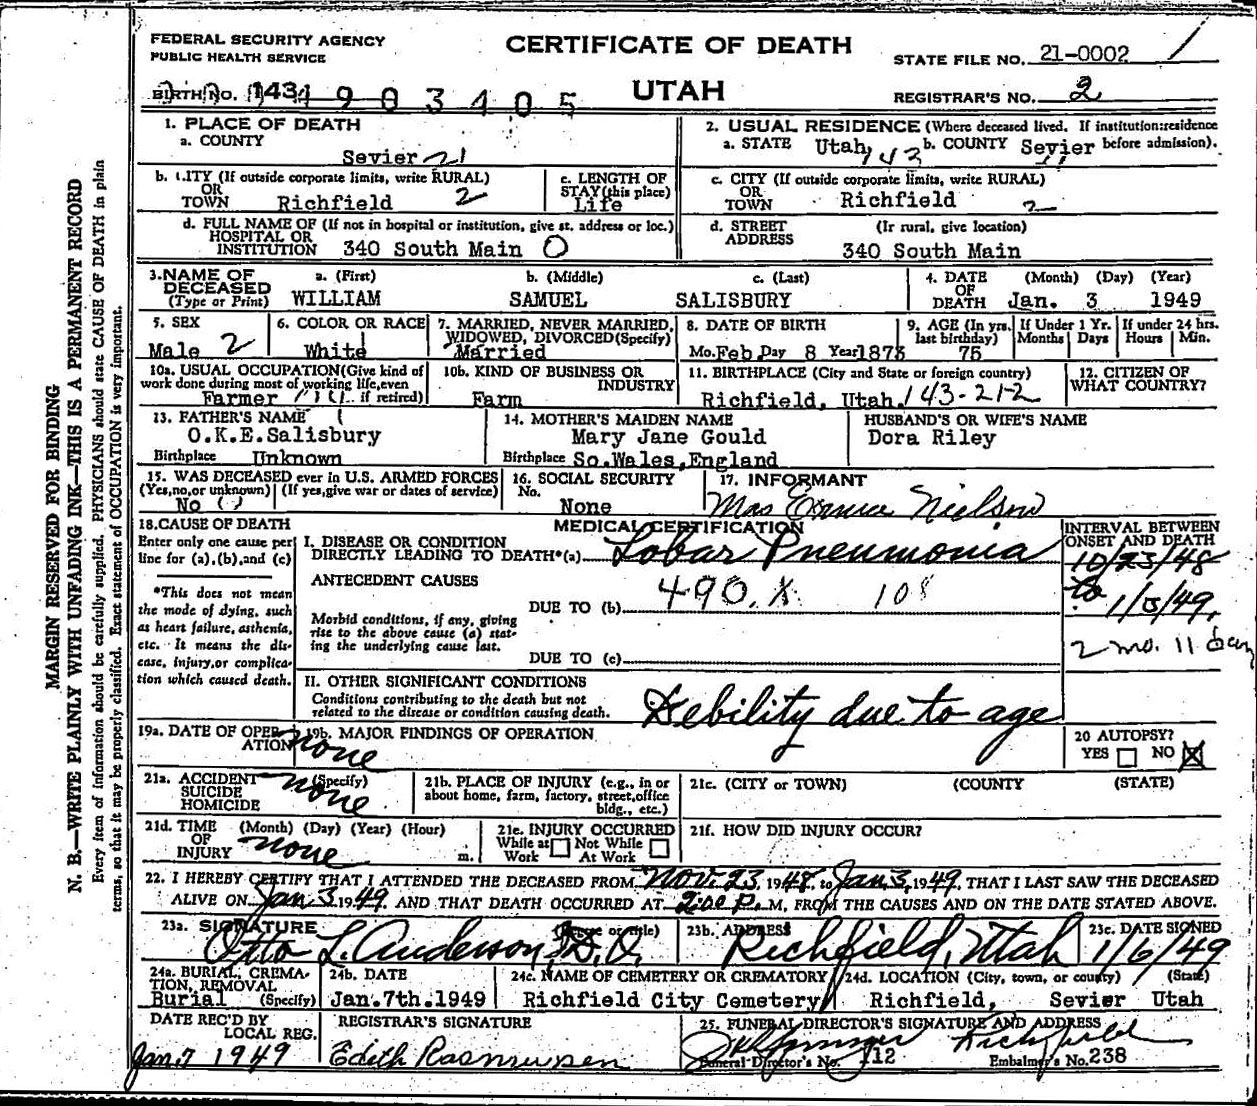 FEDERAL SECURITY AGENCY
PUBLIC HEALTH SERVICE
CERTIFICATE OF DEATH
UTAH
STATE FILE NO. 21-0002
REGISTRAR'S NO. 2
BIRTH NO. 143
1. PLACE OF DEATH
a. COUNTY
Sevier 21
b. CITY (If outside corporate limits, write RURAL)
OR
TOWN Richfield 2
c. LENGTH OF
STAY (this place)
Life
d. FULL NAME OF (If not in hospital or institution, give st. address or loc.)
HOSPITAL OR
INSTITUTION 340 South Main O
2. USUAL RESIDENCE (Where deceased lived. If institution:residence
a. STATE Utah 143 b. COUNTY Sevier before admission).
c. CITY (If outside corporate limits, write RURAL)
OR
TOWN Richfield 2
d. STREET (Ir rural, give location)
ADDRESS
340 South Main
3.NAME OF a. (First) b. (Middle) c. (Last)
DECEASED
(Type or Print) WILLIAM SAMUEL SALISBURY
4. DATE (Month) (Day) (Year)
OF
DEATH Jan. 3 1949
5. SEX
Male 2
6. COLOR OR RACE
White
7. MARRIED, NEVER MARRIED,
WIDOWED, DIVORCED(Specify)
Married
8. DATE OF BIRTH
Mo.Feb Day 8 Year
9. AGE (In yrs. If Under 1 Yr. If under 24 hrs.
last birthday) Months Days Hours Min.
75
10a. USUAL OCCUPATION(Give kind of
work done during most of working life,even
Farmer if retired)
10b. KIND OF BUSINESS OR
INDUSTRY
Farm
11. BIRTHPLACE (City and State or foreign country)
Richfield, Utah. 143-21-2
12. CITIZEN OF
WHAT COUNTRY?
13. FATHER'S NAME
O.K.E.Salisbury
Birthplace Unknown
14. MOTHER'S MAIDEN NAME
Mary Jane Gould
Birthplace So.Wales,England
HUSBAND'S OR WIFE'S NAME
Dora Riley
15. WAS DECEASED ever in U.S. ARMED FORCES
(Yes,no,or unknown) (If yes,give war or dates of service)
No
16. SOCIAL SECURITY
No.
None
17. INFORMANT
Mrs Nielson
18.CAUSE OF DEATH
Enter only one cause per
line for (a),(b),and (c)
*This does not mean
the mode of dying, such
as heart failure, asthenia,
etc. It means the dis-
ease, injury,or complica-
tion which caused death.
MEDICAL CERTIFICATION
I. DISEASE OR CONDITION
DIRECTLY LEADING TO DEATH*(a) Lobar Pneumonia
ANTECEDENT CAUSES
490.X 108
DUE TO (b)
Morbid conditions, if any, giving
rise to the above cause (a) stat-
ing the underlying cause last.
DUE TO (c)
II. OTHER SIGNIFICANT CONDITIONS
Conditions contributing to the death but not
related to the disease or condition causing death.
Debility due to age
INTERVAL BETWEEN
ONSET AND DEATH
10/23/48
to
1/3/49.
2 mo. 11 days
19a. DATE OF OPER-
ATION none
19b. MAJOR FINDINGS OF OPERATION
20 AUTOPSY?
YES NO X
21a. ACCIDENT (Specify)
SUICIDE none
HOMICIDE
21b. PLACE OF INJURY (e.g., in or
about home, farm, factory, street,office
bldg., etc.)
21c. (CITY or TOWN) (COUNTY) (STATE)
21d. TIME (Month) (Day) (Year) (Hour)
OF
INJURY none m.
21e. INJURY OCCURRED
While at Not While
Work At Work
21f. HOW DID INJURY OCCUR?
22. I HEREBY CERTIFY THAT I ATTENDED THE DECEASED FROM Nov. 23, 1948, to Jan 3, 1949, THAT I LAST SAW THE DECEASED
ALIVE ON Jan 3 1949. AND THAT DEATH OCCURRED AT 2:00 P.M, FROM THE CAUSES AND ON THE DATE STATED ABOVE.
23a. SIGNATURE (Degree or title)
Otto L. Anderson, D.O.
23b. ADDRESS
Richfield, Utah
23c. DATE SIGNED
1/6/49
24a. BURIAL, CREMA-
TION, REMOVAL
Burial (Specify)
24b. DATE
Jan.7th.1949
24c. NAME OF CEMETERY OR CREMATORY
Richfield City Cemetery
24d. LOCATION (City, town, or county) (State)
Richfield, Sevier Utah
DATE REC'D BY
LOCAL REG.
Jan. 7 1949
REGISTRAR'S SIGNATURE
Edith Rasmussen
25. FUNERAL DIRECTOR'S SIGNATURE AND ADDRESS
Richfield
Funeral Director's No. 112 Embalmer's No.238
MARGIN RESERVED FOR BINDING
N. B.—WRITE PLAINLY WITH UNFADING INK—THIS IS A PERMANENT RECORD
Every item of information should be carefully supplied. PHYSICIANS should state CAUSE OF DEATH in plain
terms, so that it may be properly classified. Exact statement of OCCUPATION is very important.